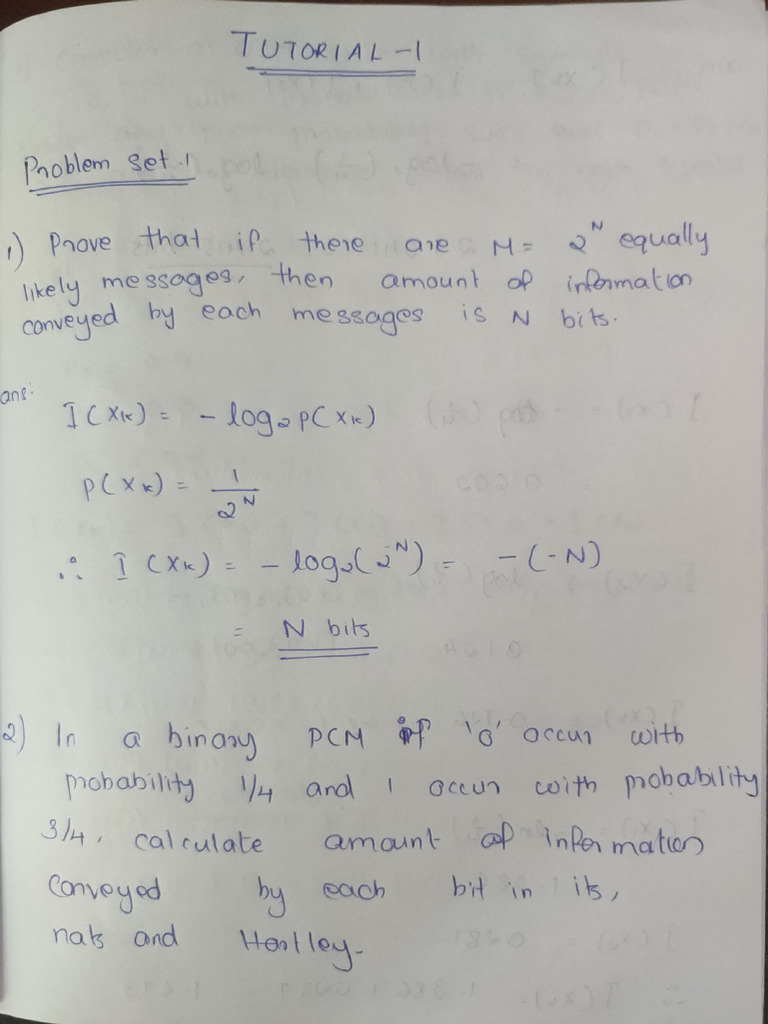 TUTORIAL -1
Problem set.1
1) Prove that if there are M = 2^N equally
likely messages, then amount of information
conveyed by each messages is N bits.
ans:
I(xk) = - log2 P(xk)
P(xk) = 1/2^N
∴ I(xk) = - log2(2^-N) = -(-N)
= N bits
2) In a binary PCM if 'o' occur with
probability 1/4 and 1 occur with probability
3/4, calculate amount of information
conveyed by each bit in its,
nats and Hartley.